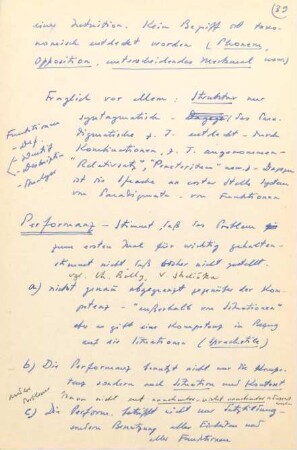 39
eines Intuition. Kein Begriff ist taxo-
nomisch entdeckt worden (Phonem,
Opposition, unterscheidendes Merkmal usw.)
Fraglich vor allem: Struktur nur
syntagmatisch - das Para-
digmatische z. T. entdeckt - durch
Kombinationen, z. T. angenommen -
"Relativsatz", "Praeteritum" usw. - Dagegen
ist die Sprache an erster Stelle System
von Paradigmata - von Funktionen
Funktionen
- Def.
- Identif.
- Deskription
Performanz - Stimmt, daß das Problem
zum ersten Mal für wichtig gehalten -
stimmt nicht daß bisher nicht gestellt.
vgl. Ch. Bally, V. Skalička
a) nicht genau abgegrenzt gegenüber der Kom-
petenz - "außerhalb von Situationen"
aber es gibt eine Kompetenz in Bezug
auf die Situationen (Sprachstile)
b) Die Performanz benutzt nicht nur die Kompe-
tenz sondern auch Situation und Kontext
andere
Probleme
kann nicht mit
c) Die Perform. betrifft nicht nur
sondern Benutzung aller Einheiten und
aller Funktionen